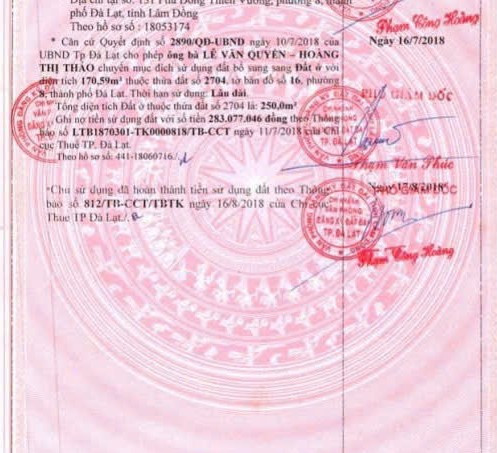 Địa chỉ tại số: 151 Phù Đổng Thiên Vương, phường 8, thành
phố Đà Lạt, tỉnh Lâm Đồng
Theo hồ sơ số : 18053174
Phạm Công Hoàng
* Căn cứ Quyết định số 2890/QĐ-UBND ngày 10/7/2018 của
Ngày 16/7/2018
UBND Tp Đà Lạt cho phép ông bà LÊ VĂN QUYỀN – HOÀNG
THỊ THẢO chuyển mục đích sử dụng đất bổ sung sang Đất ở với
diện tích 170,59m² thuộc thửa đất số 2704, tờ bản đồ số 16, phường
8, thành phố Đà Lạt. Thời hạn sử dụng: Lâu dài.
PHÓ GIÁM ĐỐC
Tổng diện tích Đất ở thuộc thửa đất số 2704 là: 250,0m²
Ghi nợ tiền sử dụng đất với số tiền 283.077.046 đồng theo Thông
báo số LTB1870301-TK0000818/TB-CCT ngày 11/7/2018 của Chi
cục Thuế TP. Đà Lạt.
Theo hồ sơ số: 441-18060716./.
Phạm Văn Phúc
"Chủ sử dụng đã hoàn thành tiền sử dụng đất theo Thông
báo số 812/TB-CCT/TBTK ngày 16/8/2018 của Chi cục
Thuế TP Đà Lạt./.
CHI NHÁNH
VĂN PHÒNG
ĐĂNG KÝ ĐẤT ĐAI
TP. ĐÀ LẠT
Phạm Công Hoàng